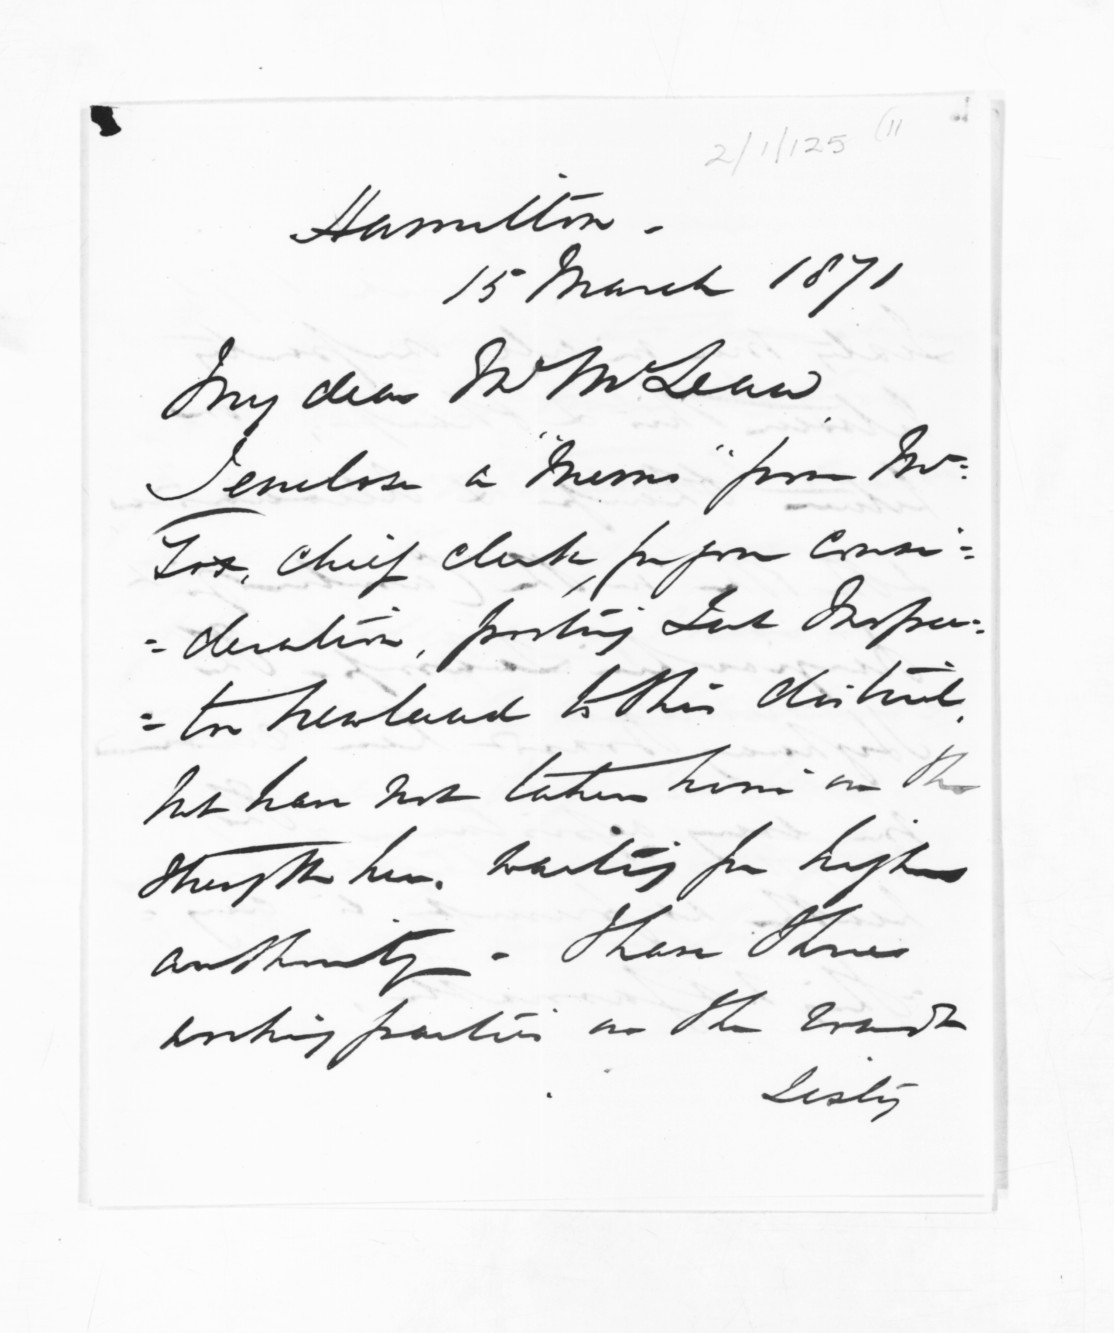 2/1/125 (11
Hamilton.
15 March 1871
My dear Mr McLean
I enclose a "Memo" from Mr.
Fox, chief clerk, for your consi=
=deration, posting Sub Inspec=
=tor Newland to this district,
but have not taken him on the
strength here, waiting for higher
authority - I have three
working parties on the road
Sixty